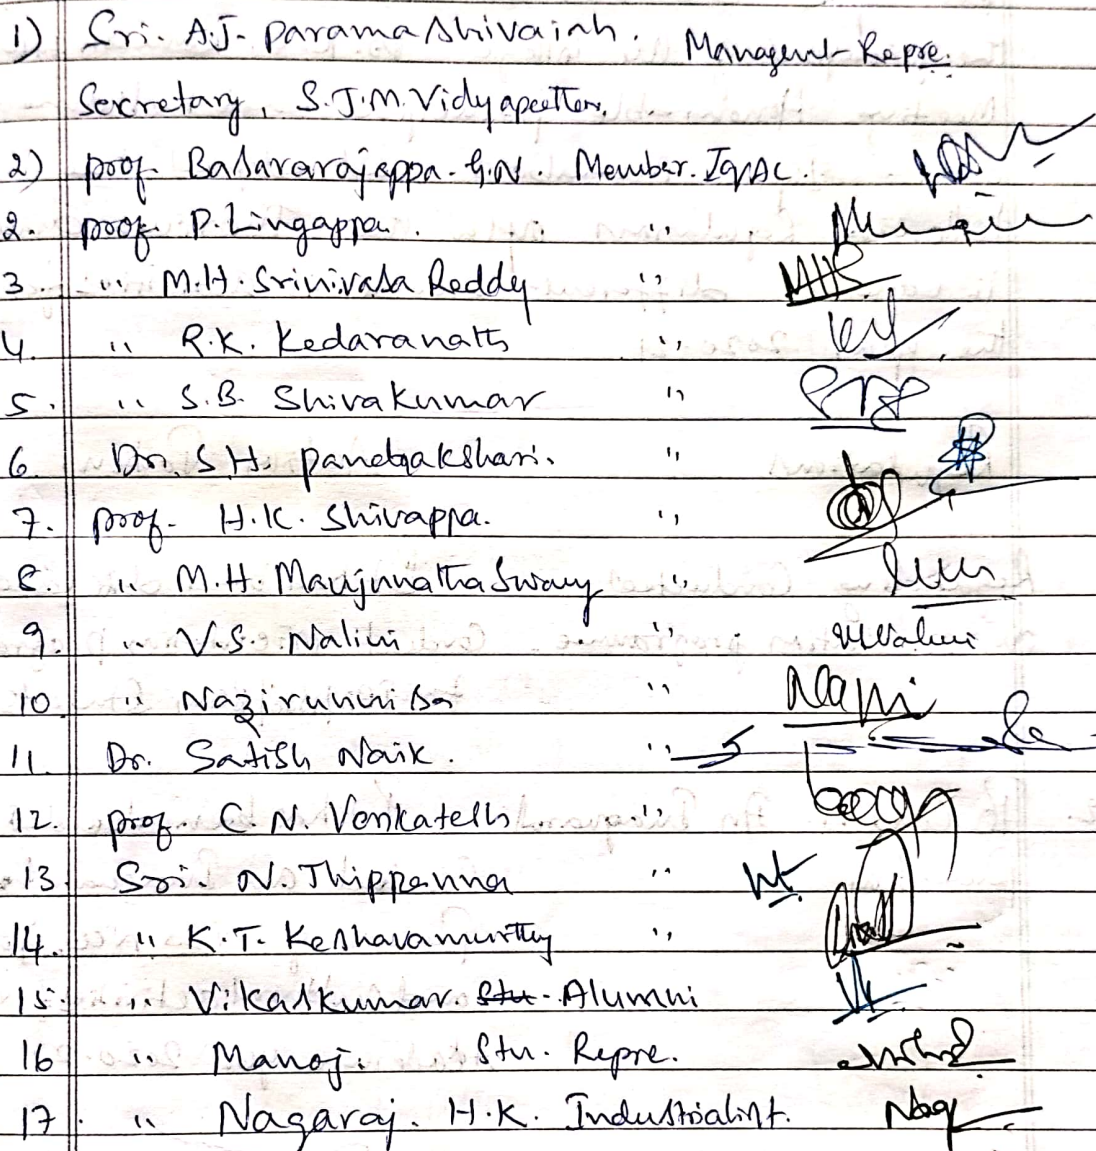 1) Sri. A.J. Paramashivaiah. Managent Repre.
Secretary, S.J.M. Vidyapeetha.
2) prof. Basavarajappa. G.N. Member. IQAC.
2. prof. P. Lingappa. "
3 " M.H. Srinivasa Reddy "
4. " R.K. Kedaranath "
5. " S.B. Shivakumar "
6. Dr. S.H. panchakshari. "
7. prof. H.K. Shivappa. "
8. " M.H. Manjunnatha Swamy "
9. " V.S. Nalini "
10 " Nazirunnisa "
11. Dr. Satish Naik. "
12. prof. C.N. Venkatesh "
13 Sri. N. Thippanna "
14. " K.T. Keshavamurthy "
15. " Vikaskumar. Stu. Alumni
16 " Manoj. Stu. Repre.
17 " Nagaraj. H.K. Industrialist.